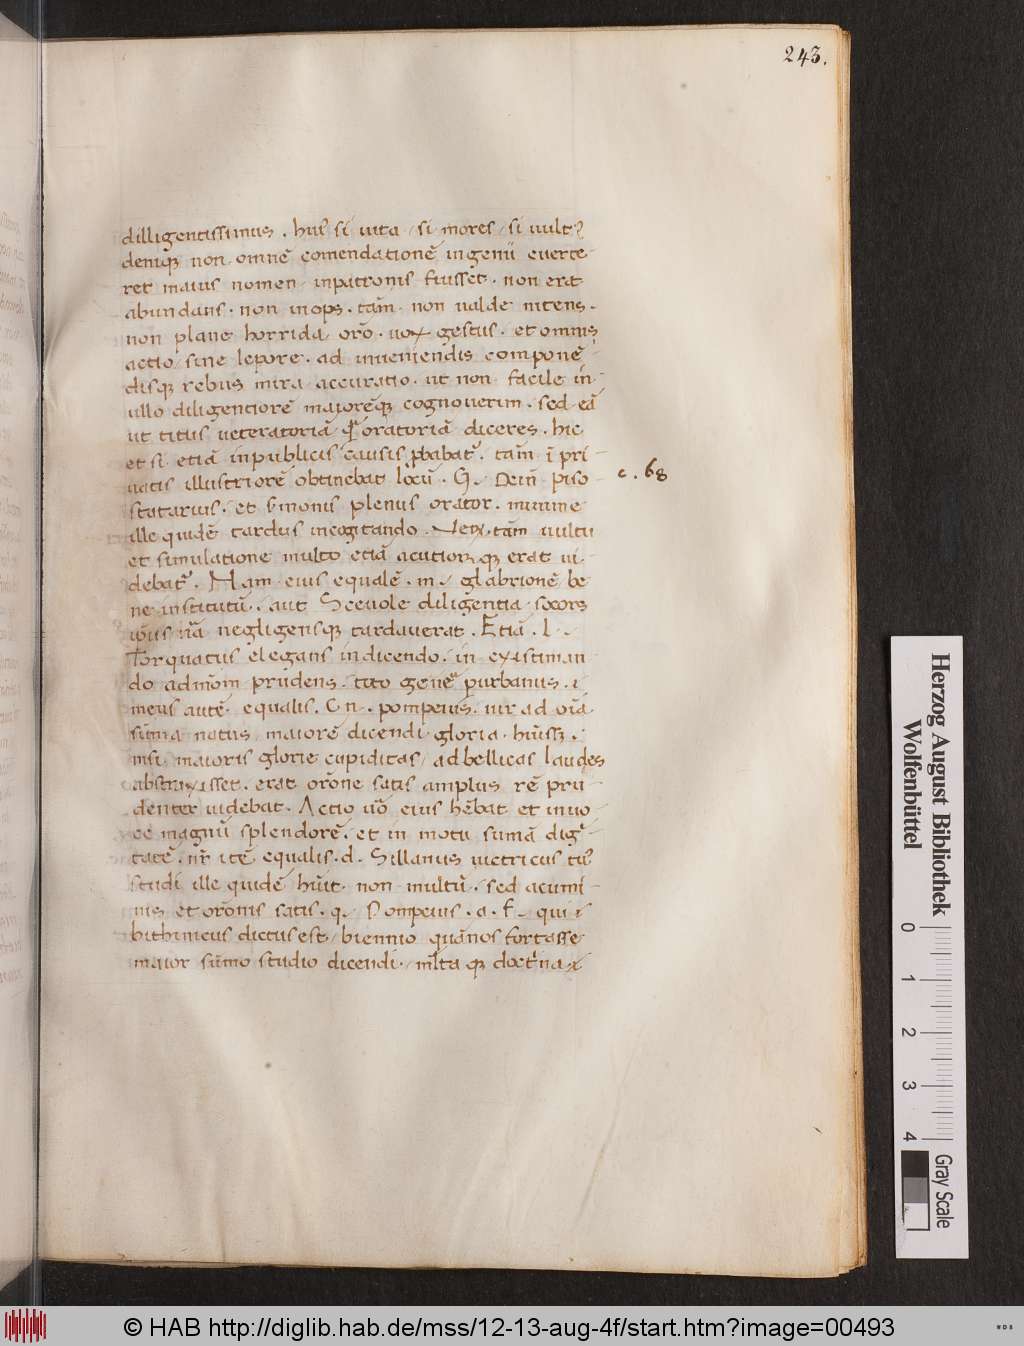 243.
dilligentissimus . huī si uita / si mores / si uult᷒
deniq; non omnē comendationē ingenii euerte-
ret maius nomen inpatronis fiusset . non erat
abundans . non inops . tam̄ non ualde nitens .
non plane horrida or̄o . uox gestus . et omnis
actio / sine lepore . ad inueniendis componē-
disq; rebus mira accuratio . ut non facile in
ullo diligentiorē maioreq; cognouerim . sed eā
ut titus ueteratoriā q̄ oratoriā diceres . hic
et si etiā inpublicis causis ꝓbabat᷒ . tam̄ ī pri-
uatis illustriorē obtinebat locū . G . Dein̄ piso
c . 68
statarius . et s̄monis plenus orator . minime
ille quidē tardus incogitando . Ver̨ . tam̄ uultu
et simulatione multo etiā acutior q; erat ui-
debat᷒ . Nam eius equalē . m . glabrionē be
ne institutū . aut Sceuole diligentia socors
ip̄ius nā negligensq; tardauerat . Etiā . l .
Torquatus elegans indicendo . in existiman
do admōm prudens . toto genē ꝑurbanus . i
meus autē equalis . C n . pompeius . uir ad oīa
sūma natus / maiorē dicendi gloria hūissꝫ .
nisi maioris glorie cupiditas / ad bellicas laudes
abstraxisset . erat or̄one satis amplus rē pru
denter uidebat . Actio uō eius hēbat et inuo
ce magnū splendorē . et in motu sumā dig᷒-
tatē . nr̄ itē equalis . d . Sillanus uictricus tu᷒
studi ille quidē hūit non multū . sed acumi-
nis et orōnis satis . q . Pompeius . a . f . qui i
bithinicus dictus est / biennio quānos fortasse
maior sūmo studio dicendi . m̄lta q; doct᷒na i
© HAB http://diglib.hab.de/mss/12-13-aug-4f/start.htm?image=00493
Herzog August Bibliothek
Wolfenbüttel
0 1 2 3 4
Gray Scale